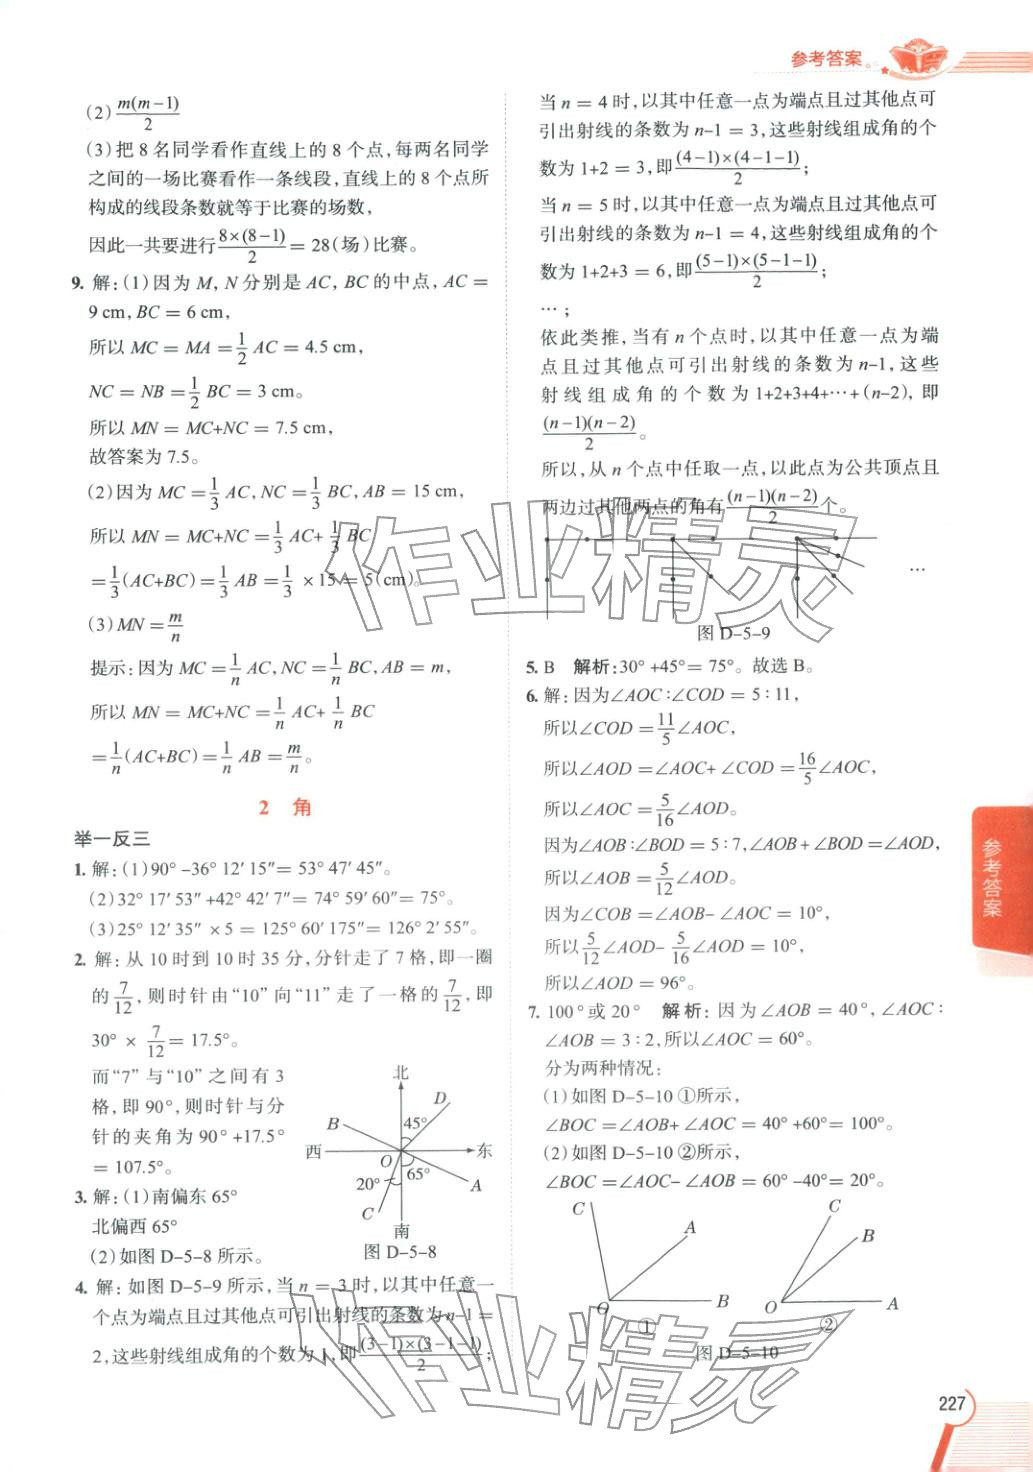 参考答案。
(2) m(m−1)/2
(3)把8名同学看作直线上的8个点,每两名同学
之间的一场比赛看作一条线段,直线上的8个点所
构成的线段条数就等于比赛的场数,
因此一共要进行 8×(8−1)/2 = 28(场)比赛。
9. 解:(1)因为 M, N 分别是 AC, BC 的中点, AC =
9 cm, BC = 6 cm,
所以 MC = MA = 1/2 AC = 4.5 cm,
NC = NB = 1/2 BC = 3 cm。
所以 MN = MC+NC = 7.5 cm,
故答案为 7.5。
(2)因为 MC = 1/3 AC, NC = 1/3 BC, AB = 15 cm,
所以 MN = MC+NC = 1/3 AC+ 1/3 BC
= 1/3 (AC+BC) = 1/3 AB = 1/3 × 15 = 5(cm)。
(3) MN = m/n
提示:因为 MC = 1/n AC, NC = 1/n BC, AB = m,
所以 MN = MC+NC = 1/n AC+ 1/n BC
= 1/n (AC+BC) = 1/n AB = m/n。
2 角
举一反三
1. 解:(1)90° −36° 12′ 15″= 53° 47′ 45″。
(2)32° 17′ 53″ +42° 42′ 7″= 74° 59′ 60″= 75°。
(3)25° 12′ 35″ × 5 = 125° 60′ 175″= 126° 2′ 55″。
2. 解:从 10 时到 10 时 35 分,分针走了 7 格,即一圈
的 7/12,则时针由“10”向“11”走了一格的 7/12,即
30° × 7/12 = 17.5°。
而“7”与“10”之间有 3
格,即 90°,则时针与分
针的夹角为 90° +17.5°
= 107.5°。
3. 解:(1)南偏东 65°
北偏西 65°
(2)如图 D-5-8 所示。
北
D
45°
B
西
O
东
65°
20°
A
C
南
图 D-5-8
4. 解:如图 D-5-9 所示,当 n = 3 时,以其中任意一
个点为端点且过其他点可引出射线的条数为 n−1 =
2,这些射线组成角的个数为 1,即 (3−1)×(3−1−1)/2;
当 n = 4 时,以其中任意一点为端点且过其他点可
引出射线的条数为 n−1 = 3,这些射线组成角的个
数为 1+2 = 3,即 (4−1)×(4−1−1)/2;
当 n = 5 时,以其中任意一点为端点且过其他点可
引出射线的条数为 n−1 = 4,这些射线组成角的个
数为 1+2+3 = 6,即 (5−1)×(5−1−1)/2;
…;
依此类推,当有 n 个点时,以其中任意一点为端
点且过其他点可引出射线的条数为 n−1,这些
射线组成角的个数为 1+2+3+4+⋯+(n−2),即
(n−1)(n−2)/2。
所以,从 n 个点中任取一点,以此点为公共顶点且
两边过其他两点的角有 (n−1)(n−2)/2 个。
…
图 D-5-9
5. B 解析:30° +45°= 75°。故选 B。
6. 解:因为∠AOC∶∠COD = 5∶11,
所以∠COD = 11/5 ∠AOC,
所以∠AOD = ∠AOC+ ∠COD = 16/5 ∠AOC,
所以∠AOC = 5/16 ∠AOD。
因为∠AOB∶∠BOD = 5∶7,∠AOB + ∠BOD =∠AOD,
所以∠AOB = 5/12 ∠AOD。
因为∠COB = ∠AOB− ∠AOC = 10°,
所以 5/12 ∠AOD− 5/16 ∠AOD = 10°,
所以∠AOD = 96°。
7. 100° 或 20° 解析:因为∠AOB = 40°,∠AOC∶
∠AOB = 3∶2,所以∠AOC = 60°。
分为两种情况:
(1)如图 D-5-10 ①所示,
∠BOC = ∠AOB+ ∠AOC = 40° +60°= 100°。
(2)如图 D-5-10 ②所示,
∠BOC = ∠AOC− ∠AOB = 60° −40°= 20°。
C
A
O
B
①
C
B
O
A
②
图 D-5-10
参考答案
227
作业精灵
作业精灵